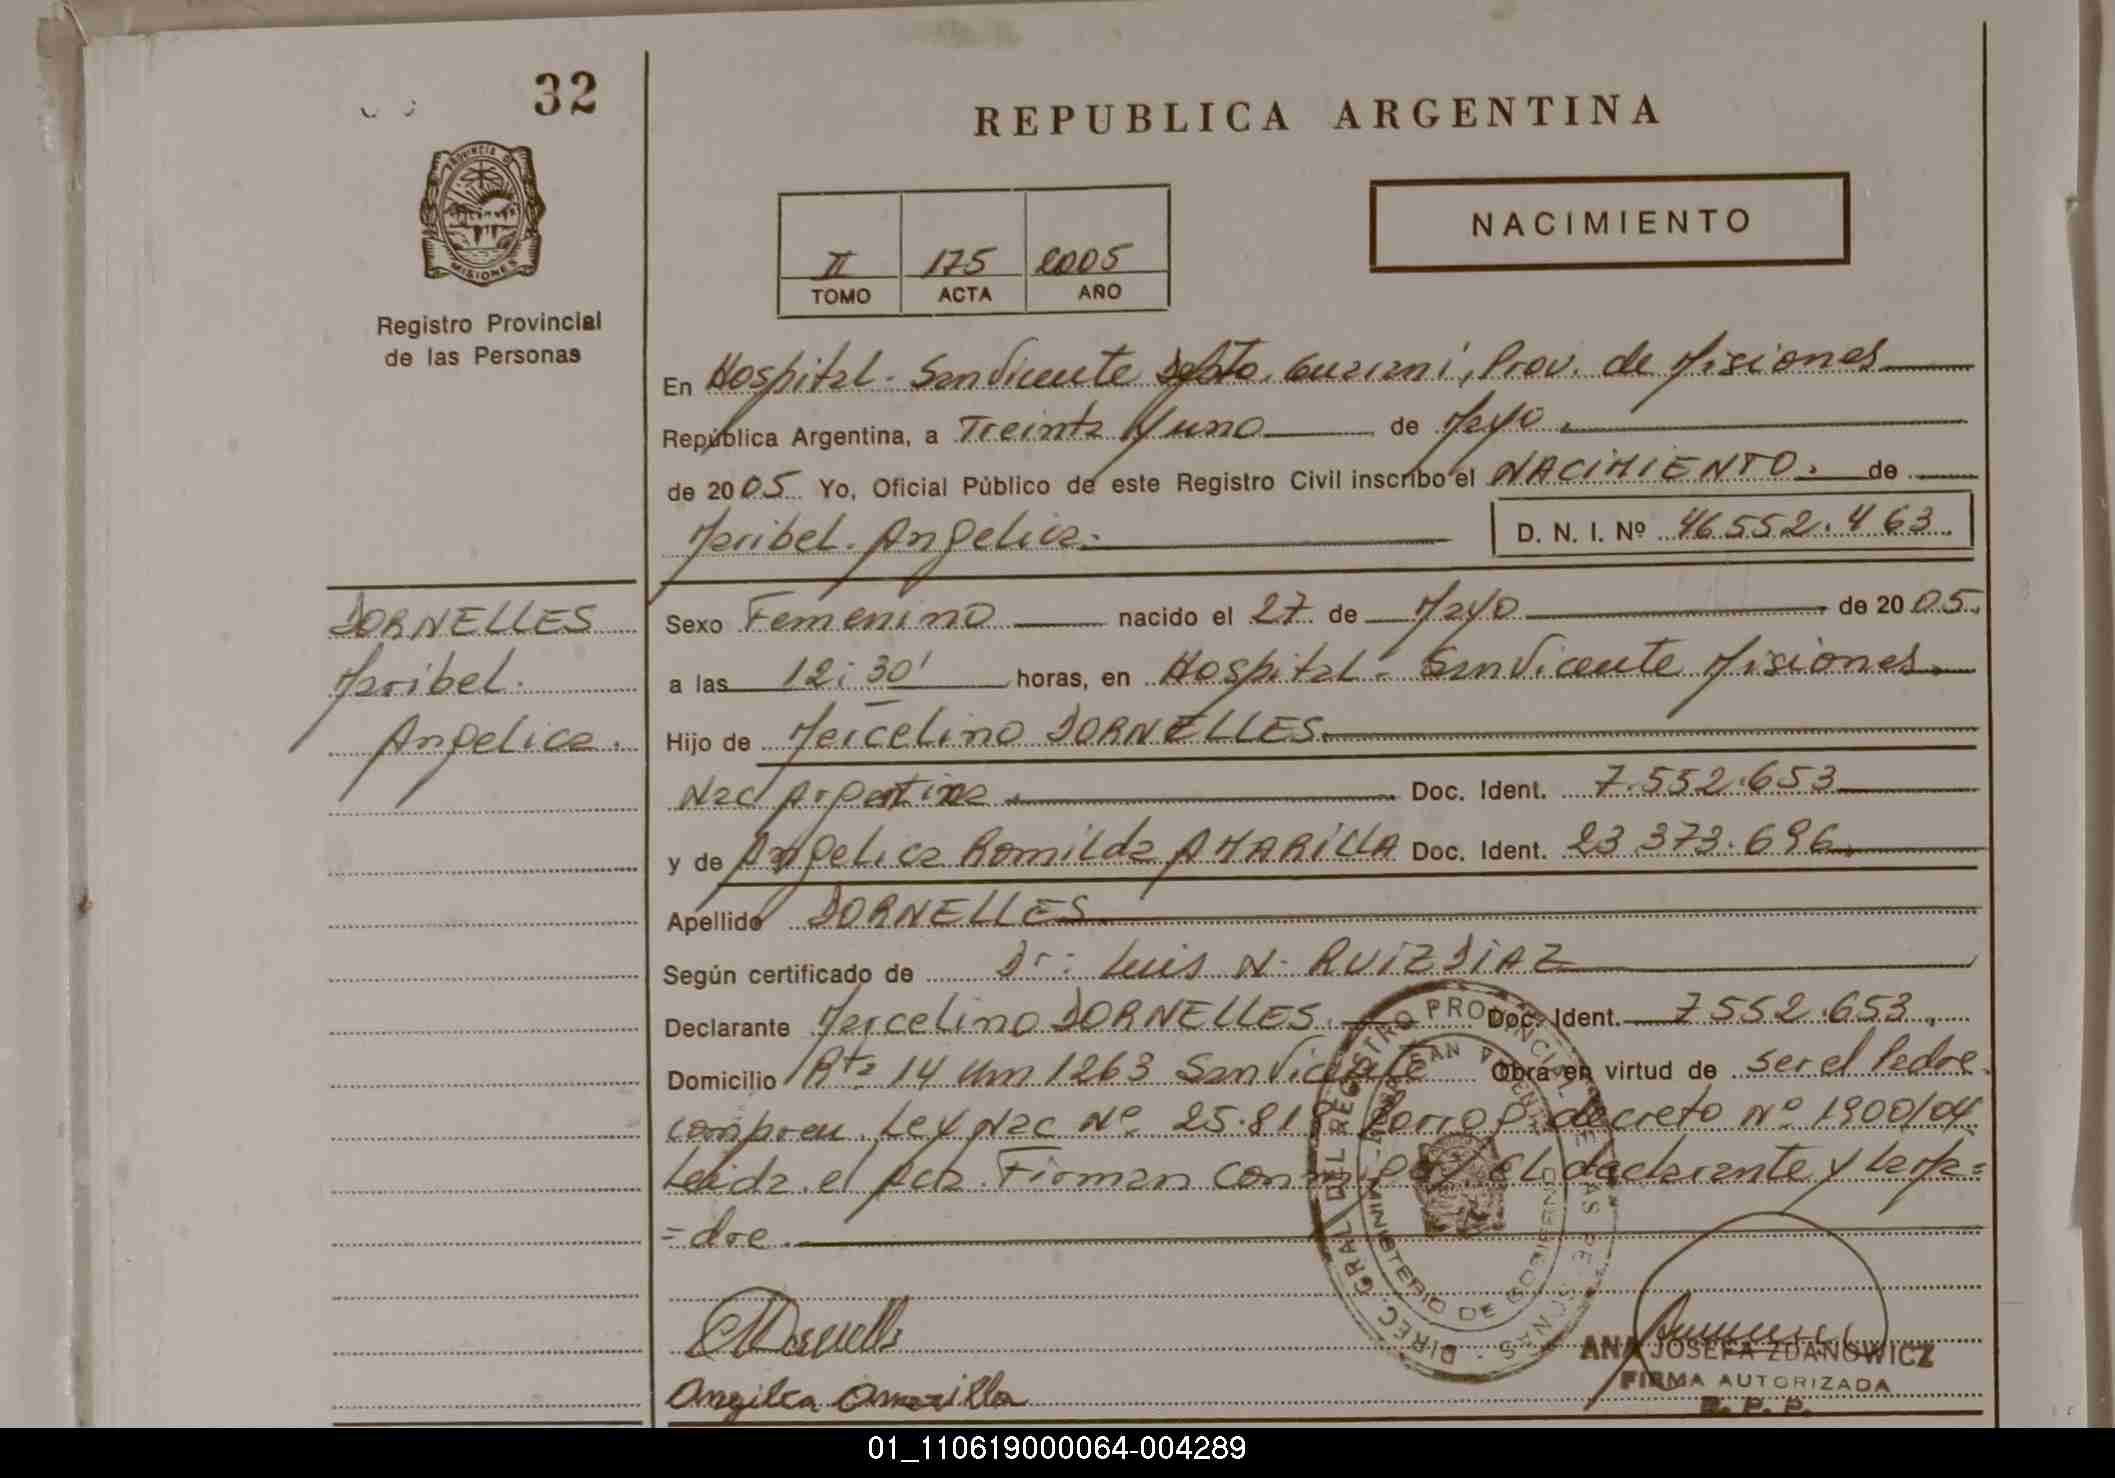 32
REPUBLICA ARGENTINA
PROVINCIA DE
MISIONES
Registro Provincial
de las Personas
NACIMIENTO
II 175 2005
TOMO ACTA AÑO
En Hospital. San Vicente Dpto. Guarani, Prov. de Misiones
República Argentina, a Treinta y uno de Mayo.
de 2005 Yo, Oficial Público de este Registro Civil inscribo el NACIMIENTO. de
Maribel. Angelica. D. N. I. Nº 46.552.463.
DORNELLES
Maribel.
Angelica.
Sexo Femenino nacido el 27 de Mayo de 2005.
a las 12:30' horas, en Hospital. San Vicente Misiones.
Hijo de Marcelino DORNELLES.
Nac Argentina. Doc. Ident. 7.552.653
y de Angelica Romilda AMARILLA Doc. Ident. 23.373.696.
Apellido DORNELLES
Según certificado de Dr: Luis N. RUIZ DIAZ
Declarante Marcelino DORNELLES. Doc. Ident. 7552.653.
Domicilio Rta 14 Km 1263 San Vicente Obra en virtud de ser el Padre.
Ley Nac Nº 25.819 decreto Nº 1900/04
Leida el Acta. Firman conmigo El declarante y la Ma=
=dre.
DIREC. GRAL. DEL REGISTRO PROVINCIAL DE LAS PERSONAS
MINISTERIO DE GOBIERNO
SAN VICENTE
Angilca Amarilla
ANA JOSEFA ZDANOWICZ
FIRMA AUTORIZADA
R. P. P.
01_110619000064-004289